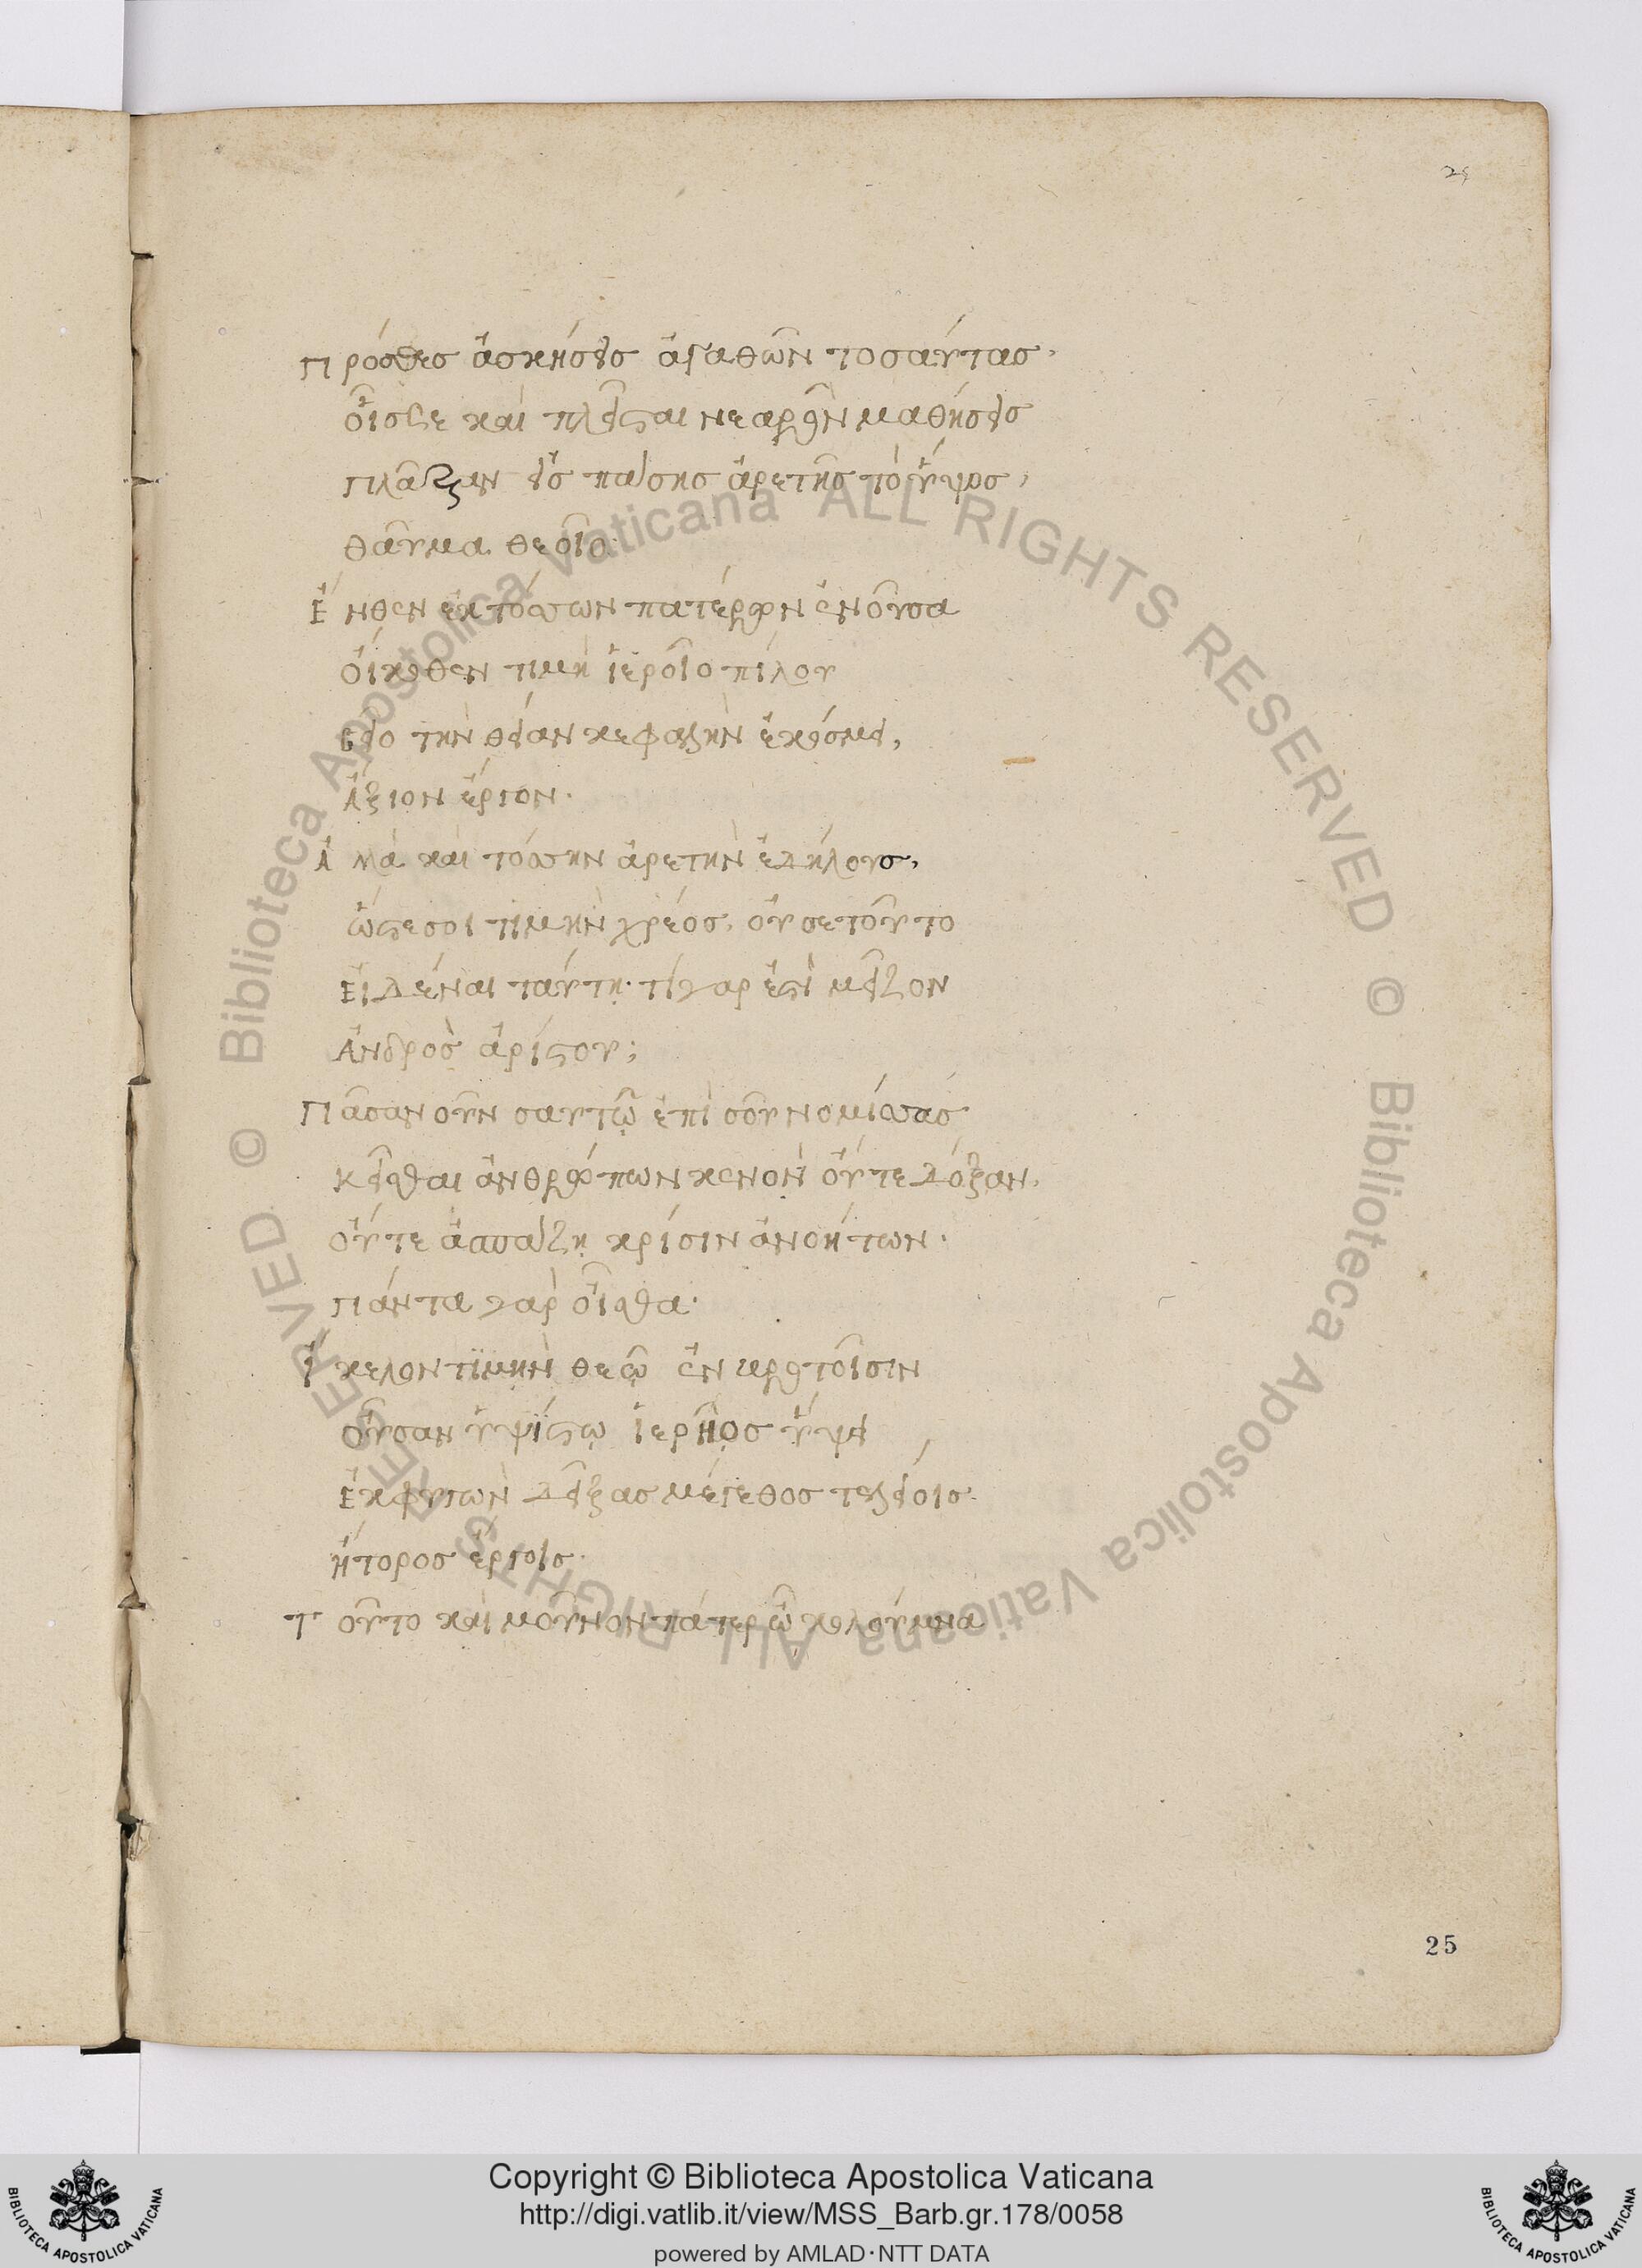 25
Πρόσθες ἀσκήσεις ἀγαθῶν τοσαύτας.
οἷστε καὶ πλεῖσται νεαρῶν μαθήσεις
εἰς πάσης ἀρετῆς τὸ ὕψος,
θαῦμα θεοῖο.
Ἔνθεν ἐκ τόσσων πατέρων ἐνοῦσα
οἴκοθεν τιμὴ ἱεροῖο πίλου
σεῖο τὴν θείαν κεφαλὴν ἐκόσμει,
ἄξιον ἔργον.
Ἀλλὰ καὶ τόσσην ἀρετὴν ἐδήλους,
ὥστε σοι τιμὴν χρέος. οὔ σε τοῦτο
Εἰδέναι ταύτῃ. τί γάρ ἐστὶ μεῖζον
Ἀνδρὸς ἀρίστου;
Πᾶσαν οὖν σαυτῷ ἐπὶ σοῦ νομίσσας
κεῖσθαι ἀνθρώπων κενὸν οὔτε δόξαν,
οὔτε ἀσπάζῃ κρίσιν ἀνοήτων.
πάντα γὰρ οἶσθα.
Εἴκελον τιμὴν θεῷ ἐν βροτοῖσιν
οὖσαν ὑψίστῳ ἱερῆος ὕψει
Ἐκφυγὼν δεῖξας μέγεθος τελείοις
ἤτορος ἔργοις.
Τοῦτο καὶ μοῦνον πάτερ ὦ κολοῦμνα
25
Copyright © Biblioteca Apostolica Vaticana
http://digi.vatlib.it/view/MSS_Barb.gr.178/0058
powered by AMLAD·NTT DATA
BIBLIOTECA APOSTOLICA VATICANA
BIBLIOTECA APOSTOLICA VATICANA
© Biblioteca Apostolica Vaticana ALL RIGHTS RESERVED © Biblioteca Apostolica Vaticana ALL RIGHTS RESERVED